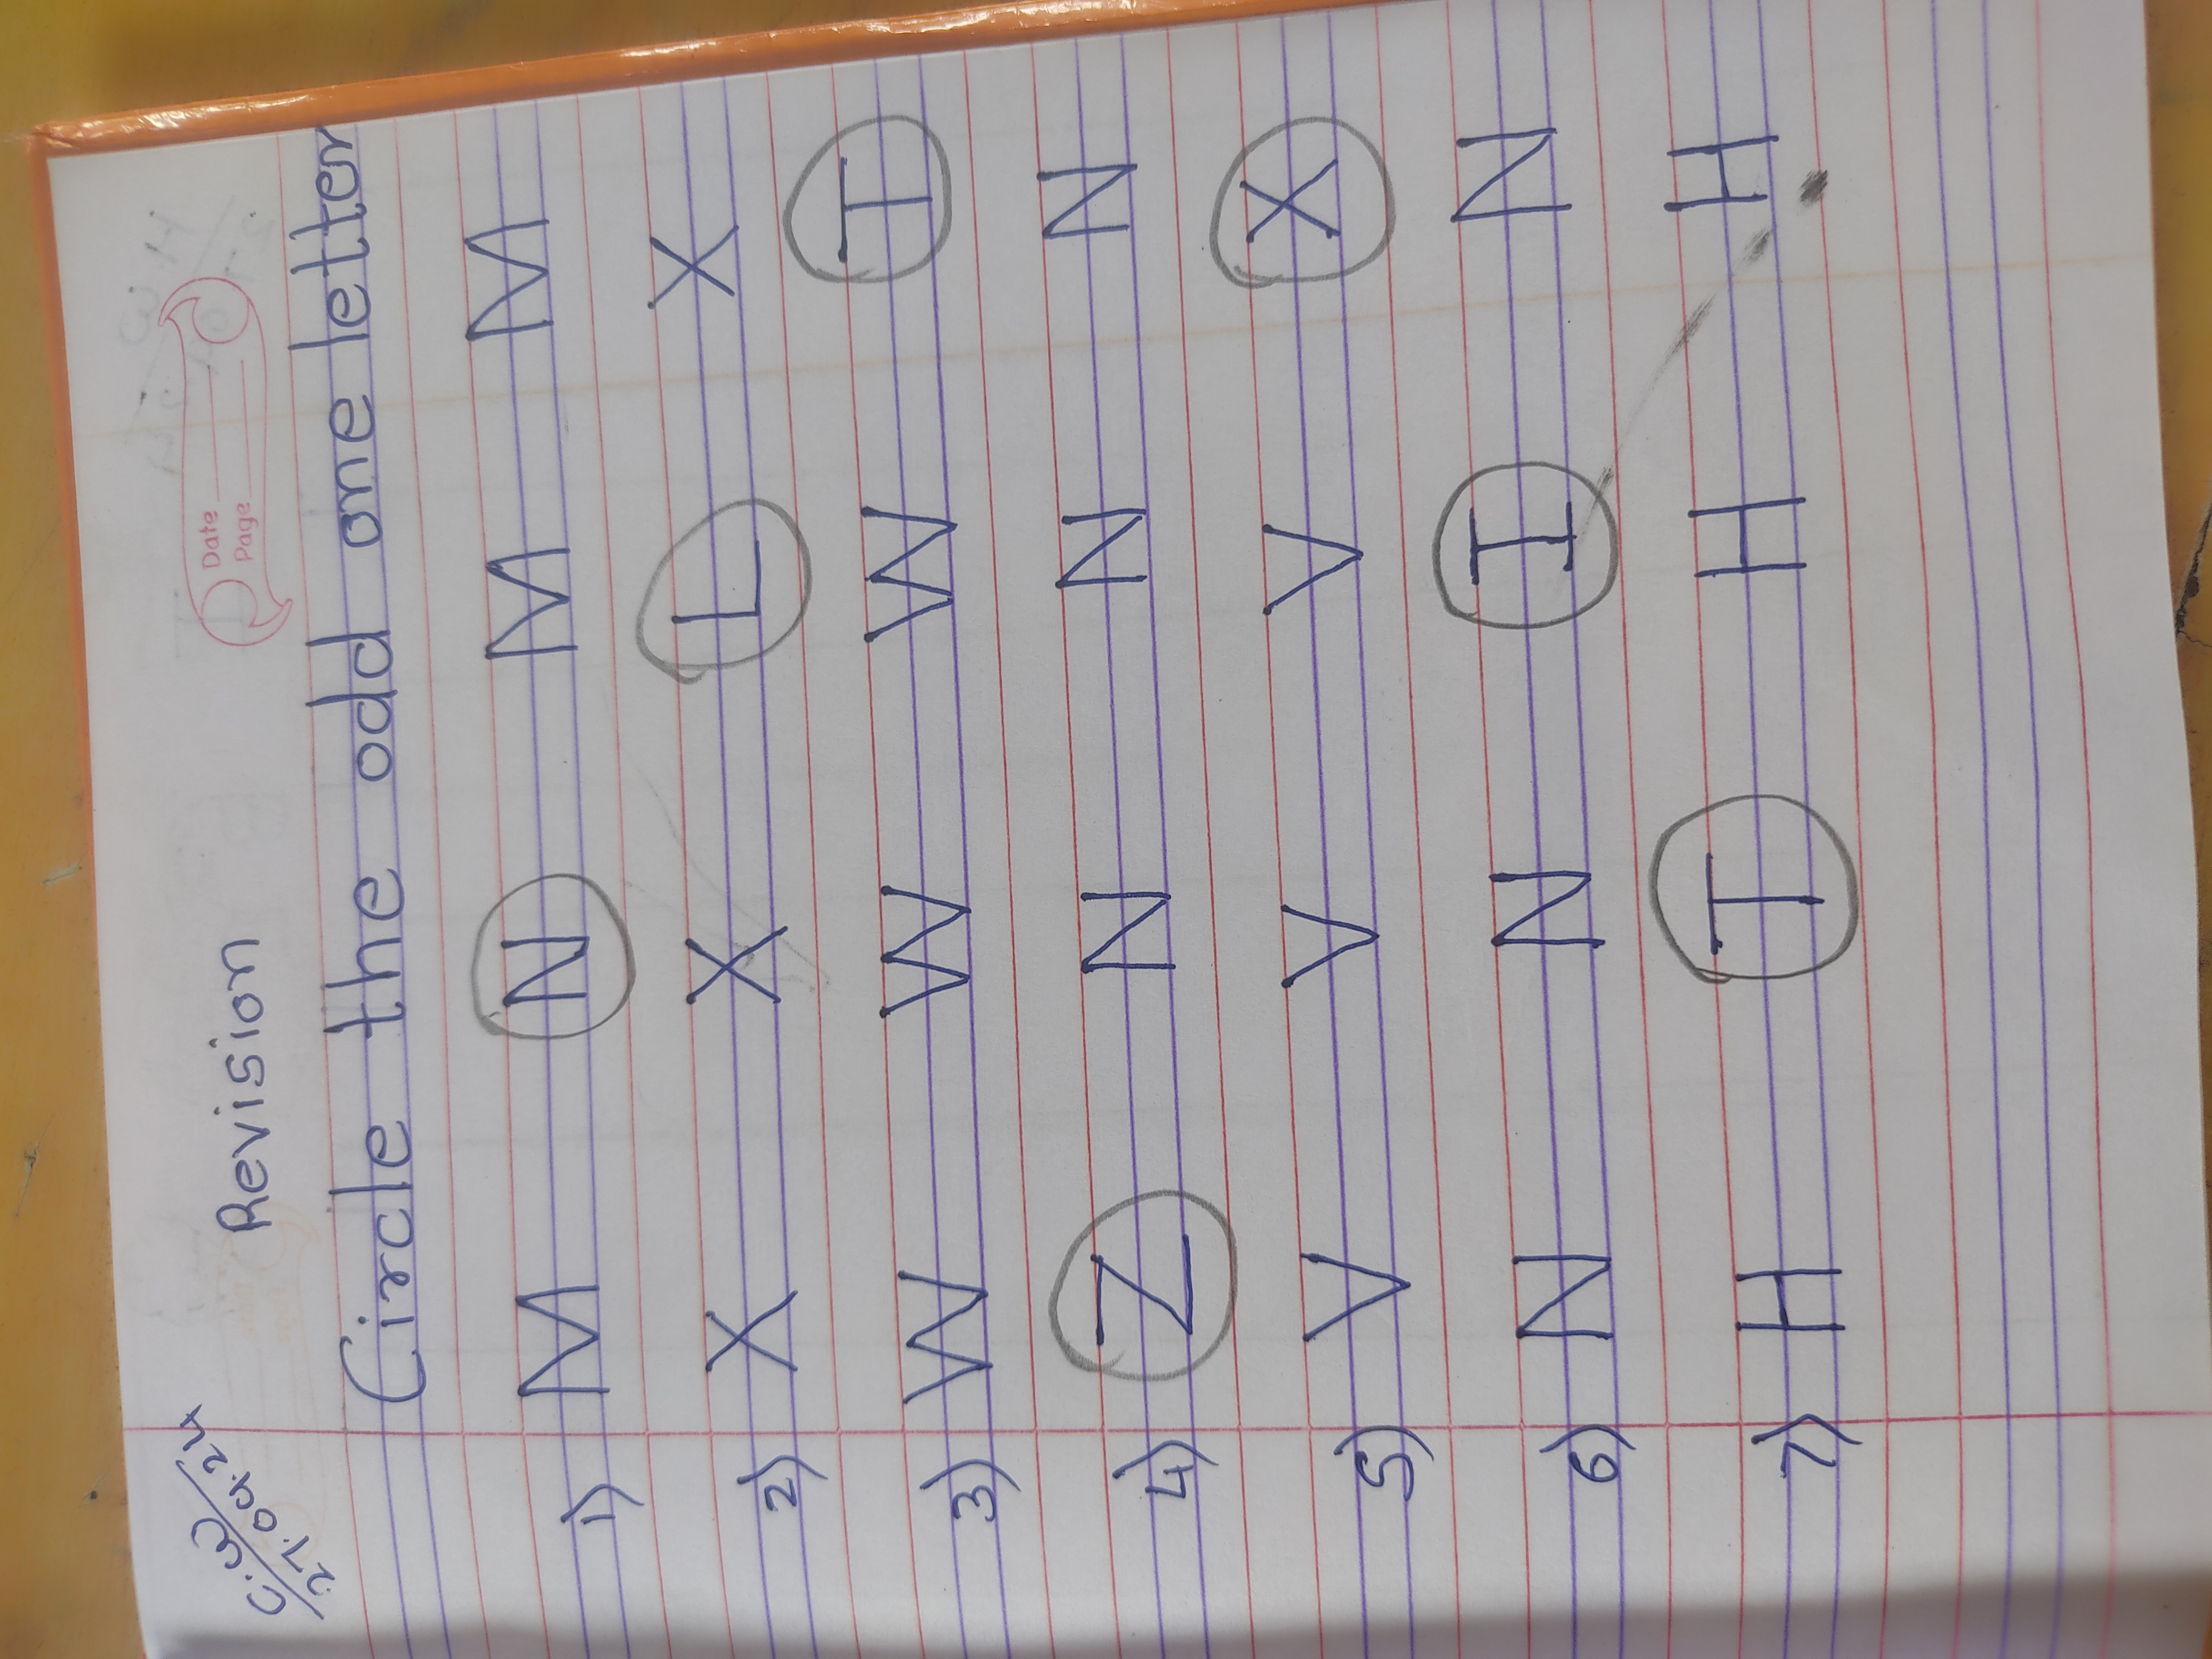 C.W
27.04.24
Revision
Date
Page
Circle the odd one letter
1) M N M M
2) X X L X
3) W W W T
4) Z N N N
5) V V V X
6) N N I N
7) H T H H